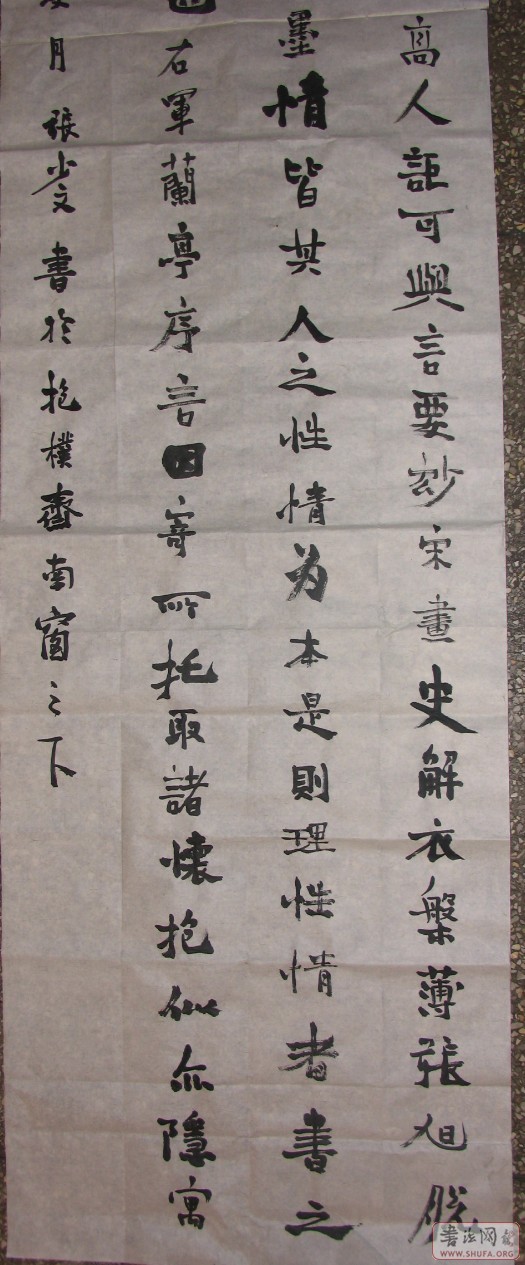 高人詎可與言要妙宋畫史解衣槃薄張旭脫
墨情皆其人之性情为本是則理性情者書之
右軍蘭亭序言因寄所托取諸懷抱似亦隱寓
月張少文書於抱樸齋南窗之下
書法网
WWW.SHUFA.ORG